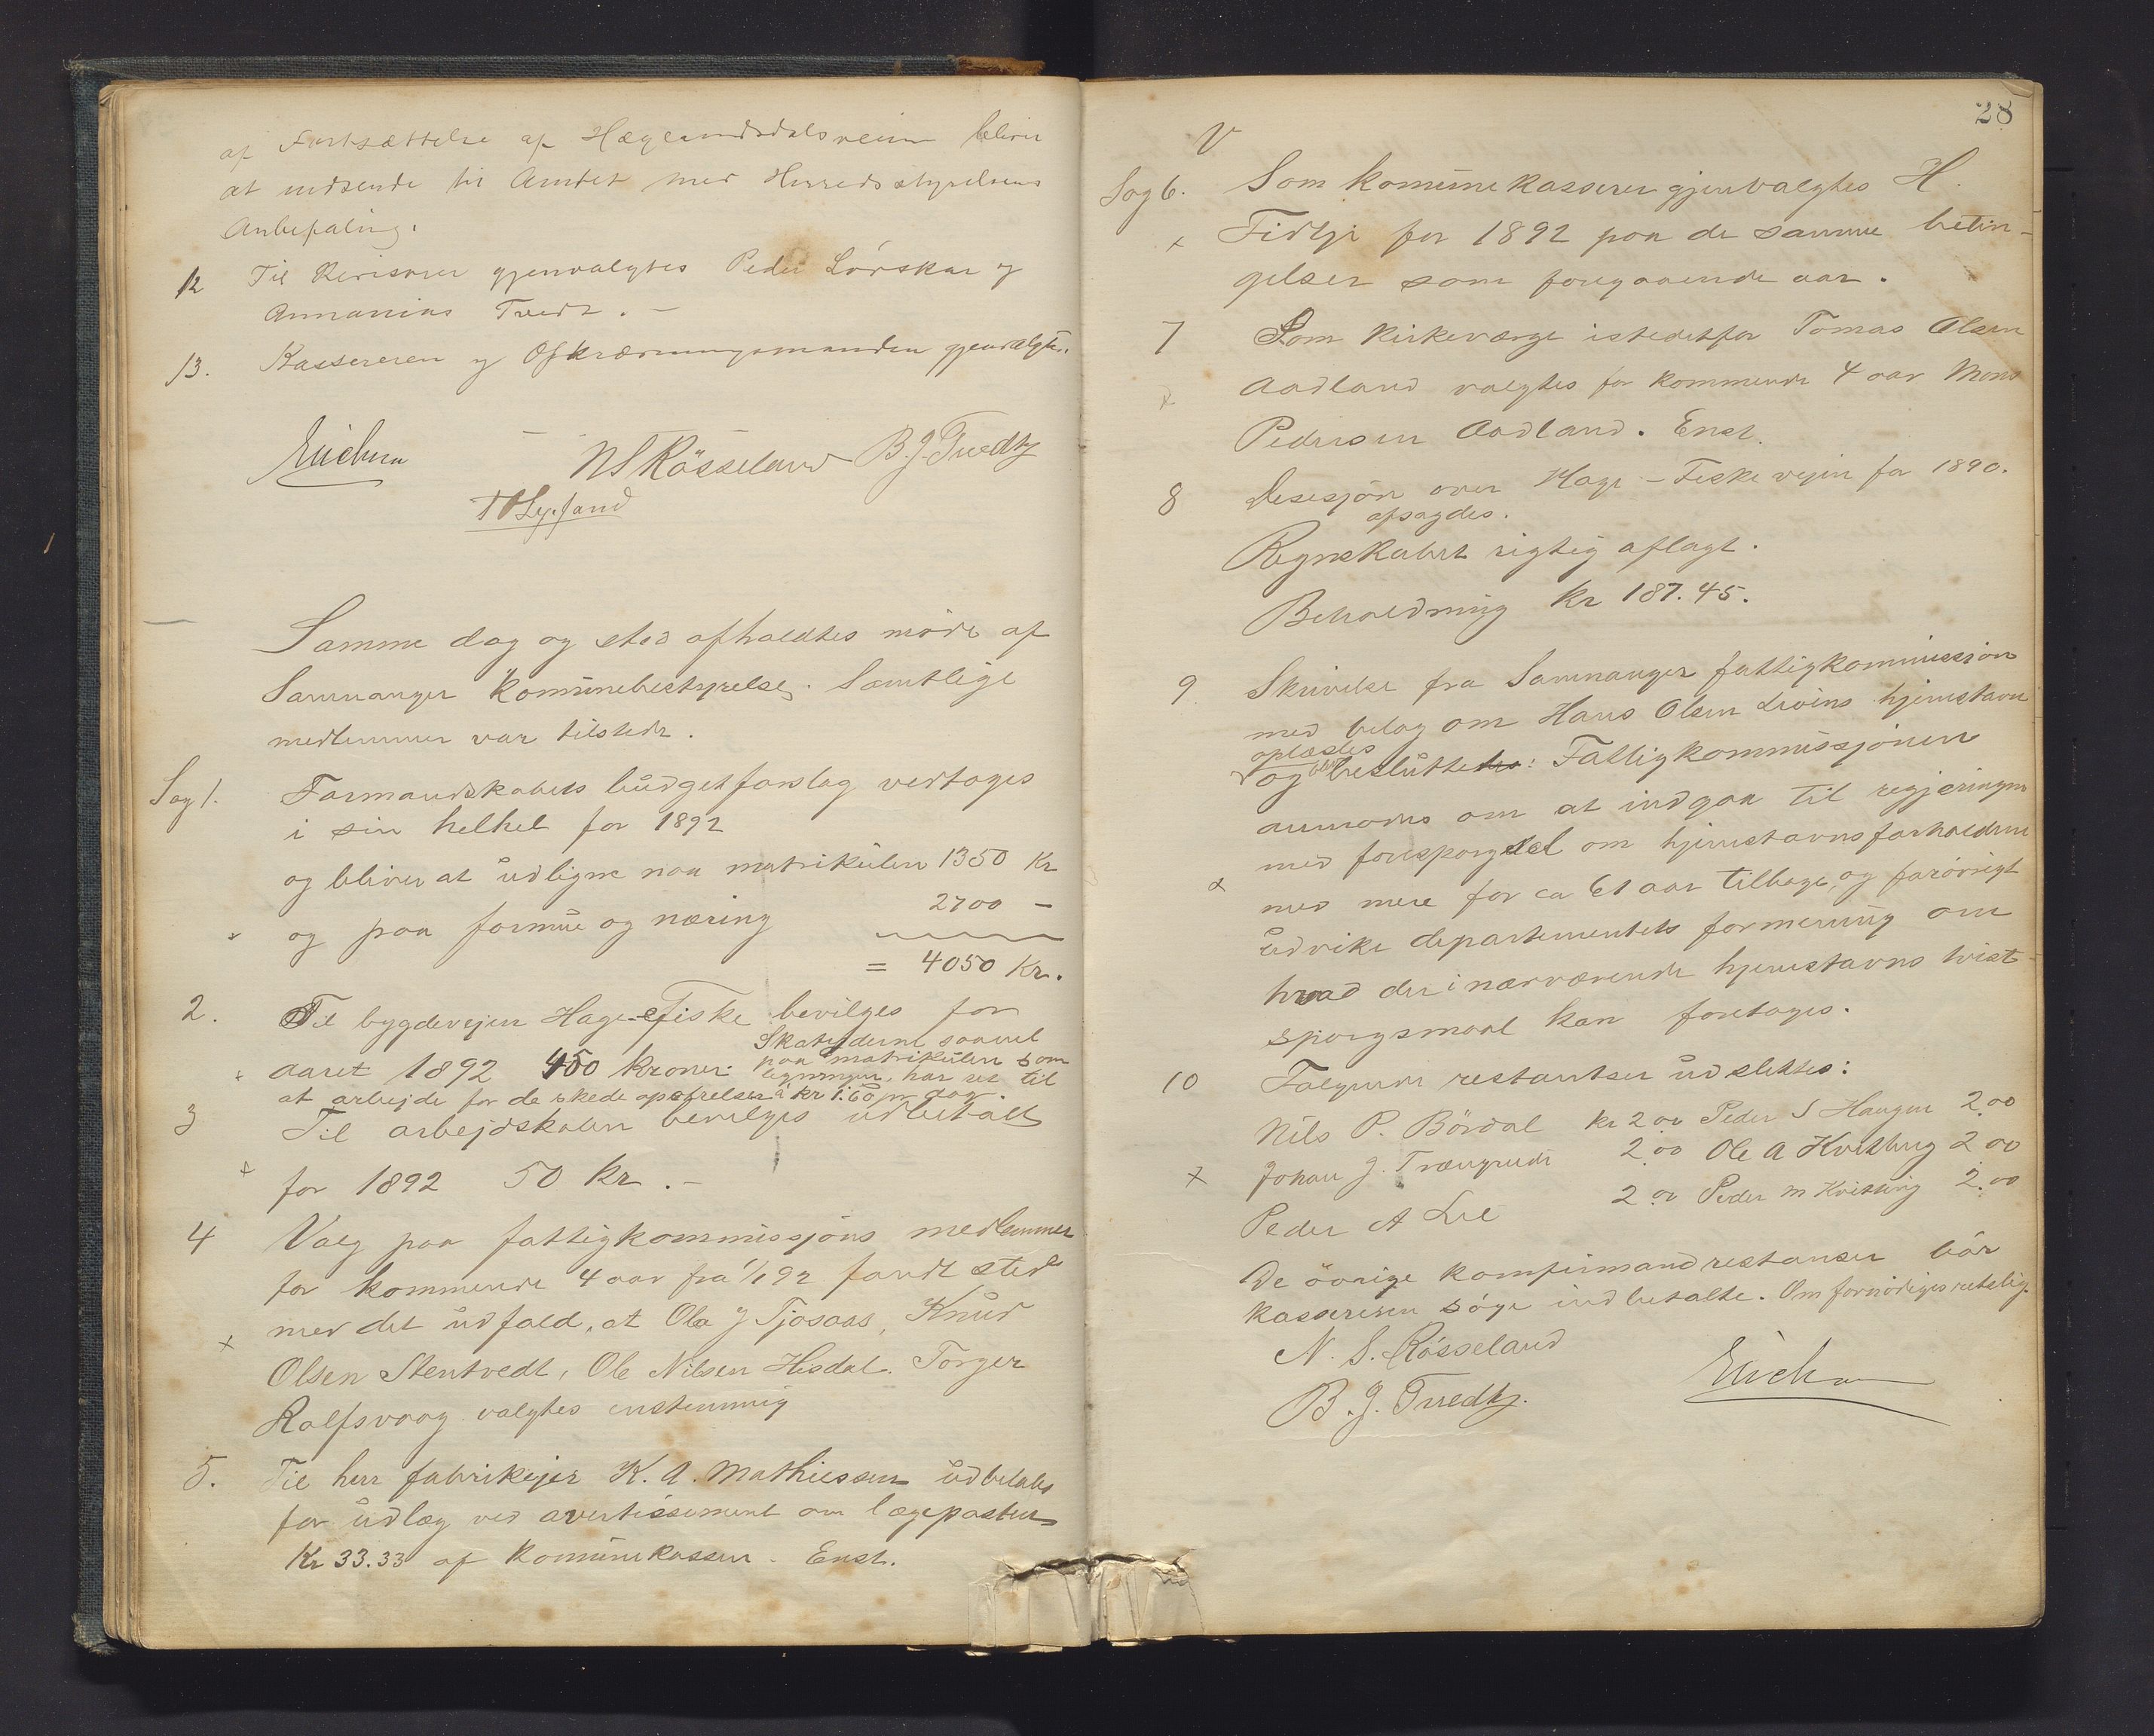 af Fortsættelse af Hæglandsdalsveien bliver
at indsende til Amtet med Herredsstyrelsens
Anbefaling.
12 Til Revisorer gjenvalgtes Peder Lørskar og
Annanias Tvedt. –
13. Kassereren og Opkrævningsmanden gjenvalgtes.
NS Rösseland B. J. Tvedt
Samme dag og sted afholdtes møde af
Samnanger kommünebestyrelse. Samtlige
medlemmer var tilstede.
Sag 1. Formandskabets büdgetforslag vedtoges
i sin helhet for 1892
og bliver at üdligne paa matrikülen 1350 Kr
og paa formüe og næring 2700 –
= 4050 Kr.
2. Til bygdevejen Hage-Tiske bevilges for
aaret 1892 450 kroner. Skatyderne saavel
paa matrikülen som
ligningen, har ret til
at arbejde for de skede opofrelser á kr 1.60 pr dag.
3 Til arbejdskolen bevilges üdbetalt
for 1892 50 Kr. –
4 Valg paa fattigkommissjons medlemmer
for kommende 4 aar fra 1/1 92 fandt sted
med det üdfald, at Ola J Tjosaas, Knüd
Olsen Stentvedt, Ole Nilsen Hisdal. Torger
Rolfsvaag valgtes enstemmig
5. Til herr fabrikejer K. A. Mathiessen üdbetales
for üdlæg ved avertissement om lægeposten
Kr 33.33 af Kommünekassen. Enst.
28
V
Sag 6. Som kommünekasserer gjenvalgtes H.
x Tidlje for 1892 paa de samme betin-
gelser som foregaaende aar.
7 Som kirkeværge istedetfor Tomas Olsen
x Aadland valgtes for kommende 4 aar Mons
Pedersen Aadland. Enst.
8 Desisjón over Hage-Tiske vejen for 1890.
afsagdes.
Regnskabet rigtig aflagt.
Beholdning Kr 187.45.
9 Skrivelse fra Samnanger fattigkommission
med bilag om Hans Olsen hjemstavn
oplæstes
og blev beslüttet: Fattigkommissjonen
anmodes om at indgaa til regjeringen
med forespørgsel om hjemstavnsforholdene
x med mere for ca 61 aar tilbage, og forøvrigt
üdvirke departementets formening om
hvad der i nærværende hjemstavns tvist-
spørgsmaal kan foretages.
10 Følgende restantser üdslettes:
Nils P. Børdal kr 2.00 Peder S Haugen 2.00
x Johan J. Trængereid 2.00 Ole A Kvitting 2.00
Peder A Lie 2.00 Peder M Kvitting 2.00
De øvrige komfirmandrestanser bør
kassereren søge indbetalte. Om fornødiges retslig.
N. S. Rösseland
B. J. Tvedt.